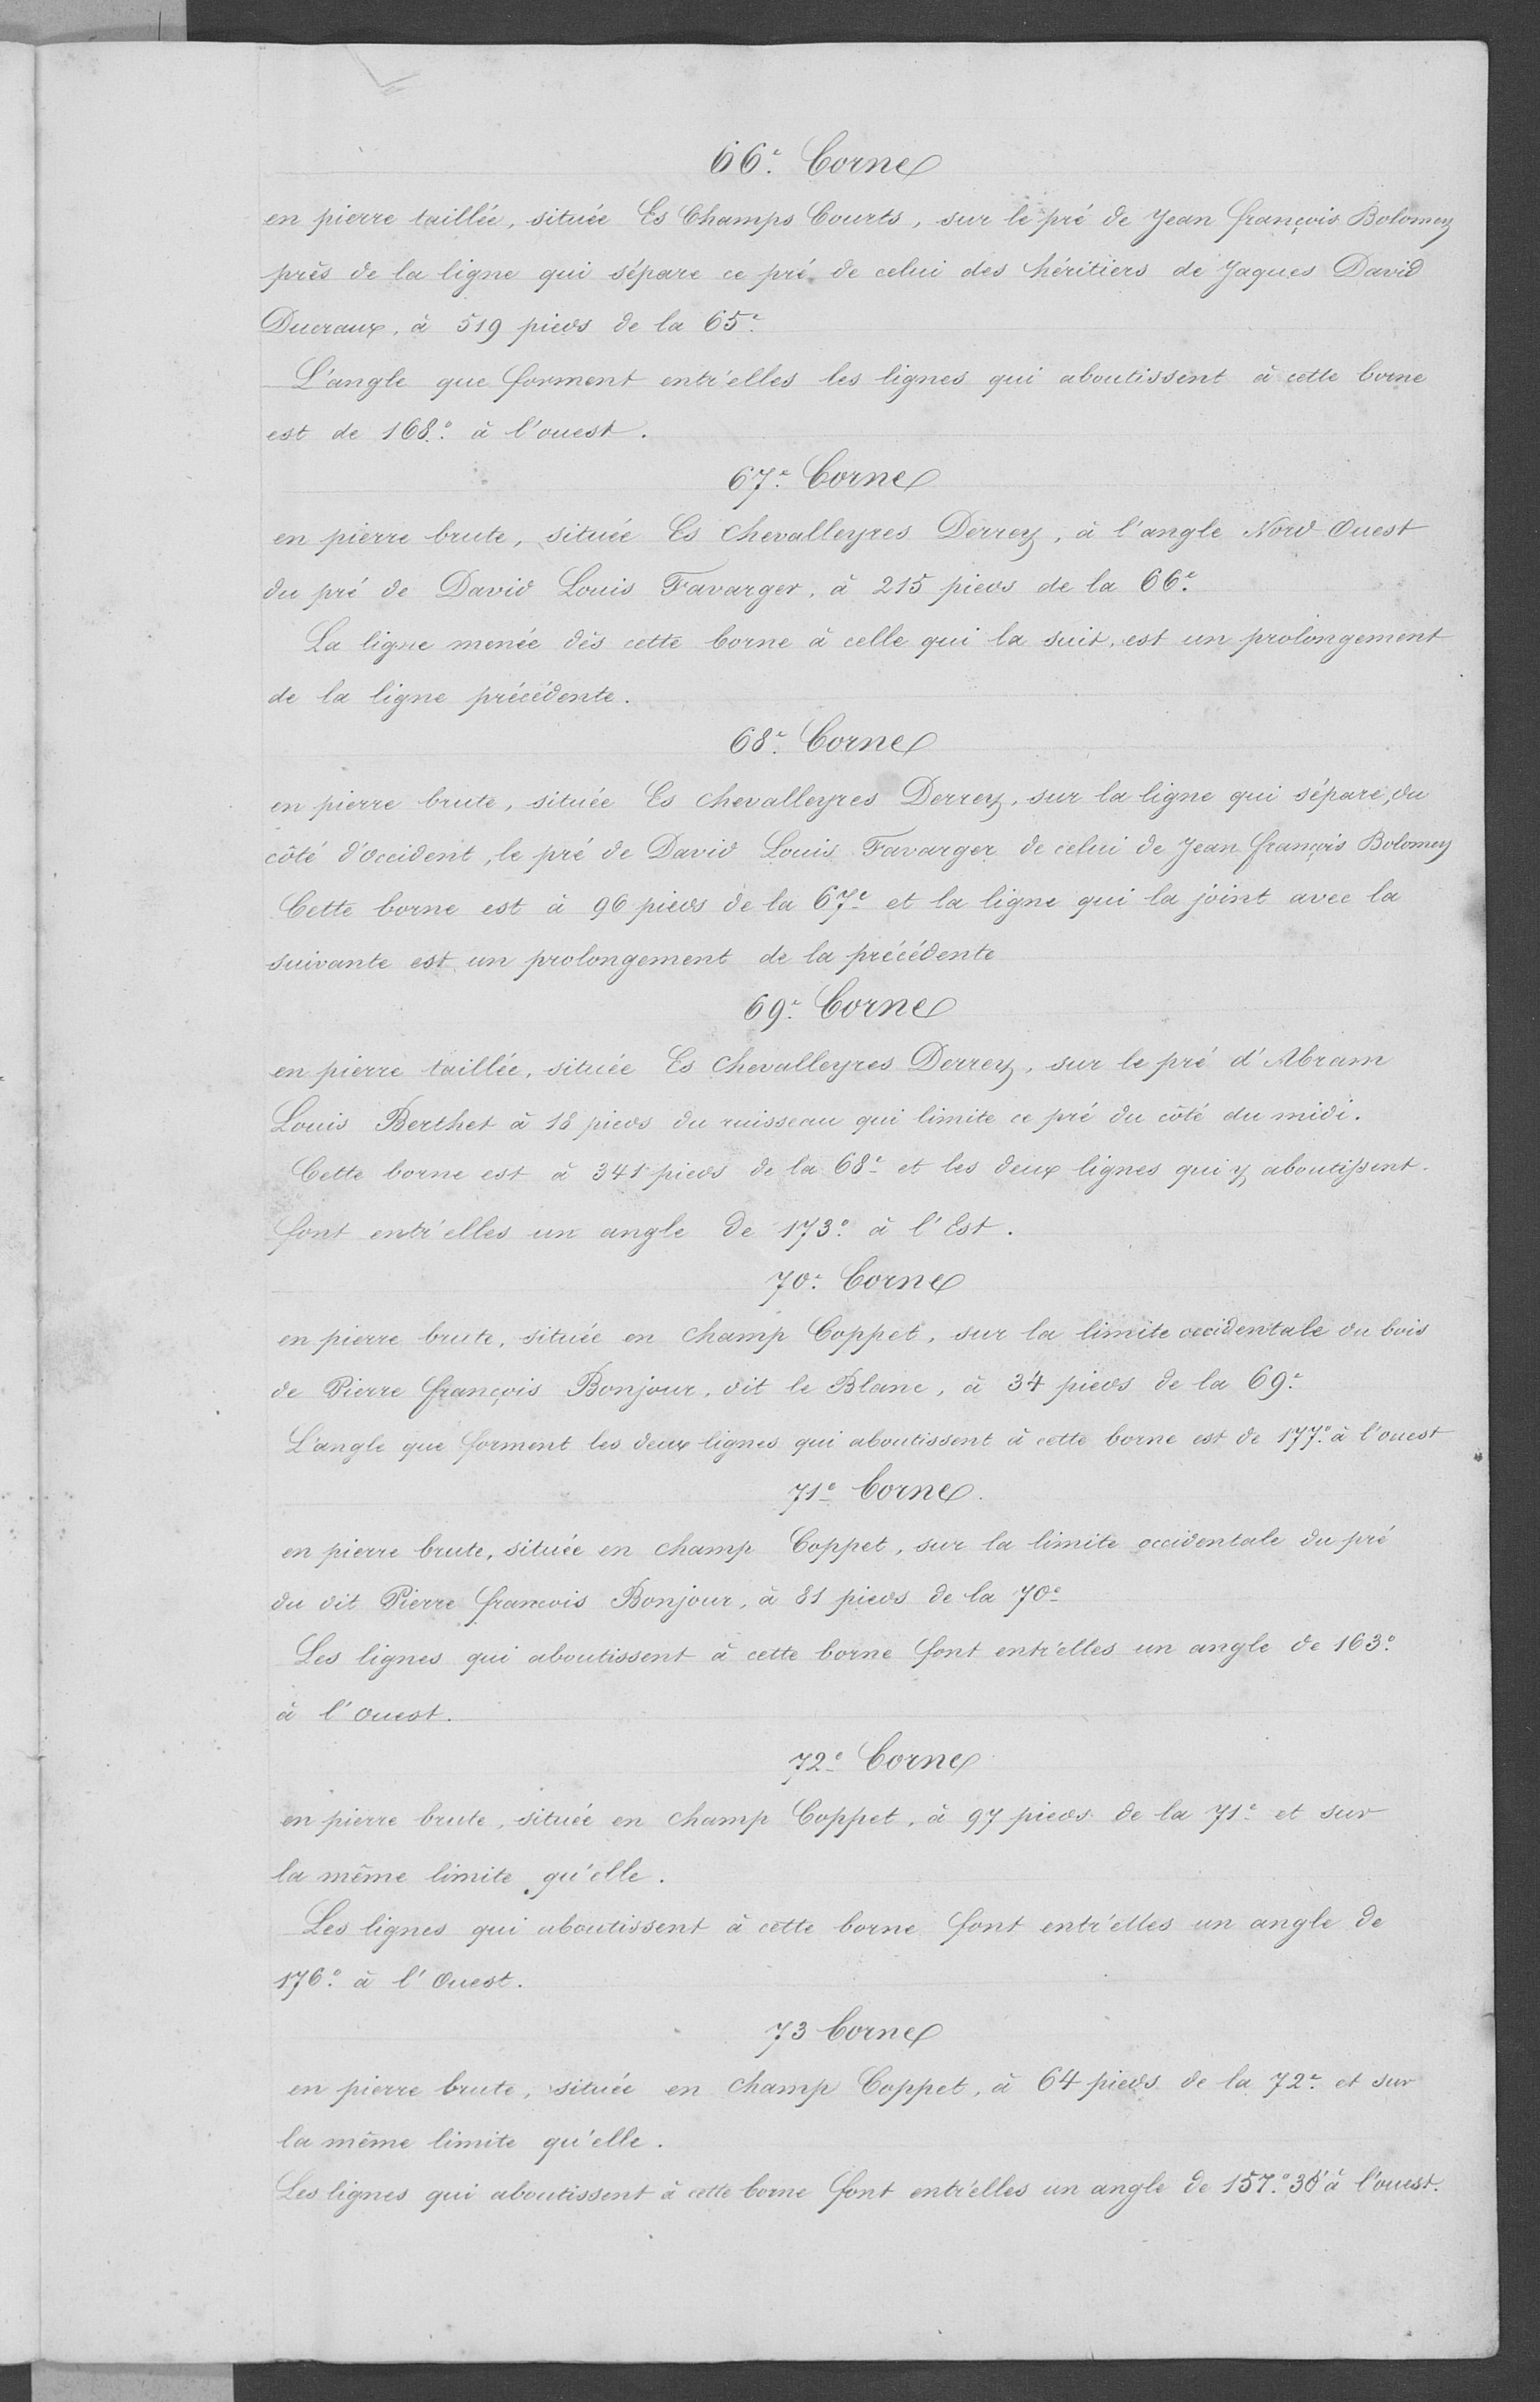 66.e Borne
en pierre taillée, située Es Champs Courts, sur le pré de Jean françois Bolomey
près de la ligne qui sépare ce pré de celui des héritiers de Jaques David
Ducraux, à 519 pieds de la 65.e
L'angle que forment entr'elles les lignes qui aboutissent à cette borne
est de 168.° à l'ouest.
67.e Borne
en pierre brute, située Es Chevalleyres Derrey, à l'angle Nord Ouest
du pré de David Louis Favarger, à 215 pieds de la 66.e
La ligne menée dès cette borne à celle qui la suit, est un prolongement
de la ligne précédente.
68.e Borne
en pierre brute, située Es Chevalleyres Derrey, sur la ligne qui sépare, du
côté d'occident, le pré de David Louis Favarger de celui de Jean françois Bolomey
Cette borne est à 96 pieds de la 67.e et la ligne qui la joint avec la
suivante est un prolongement de la précédente
69.e Borne
en pierre taillée, située Es Chevalleyres Derrey, sur le pré d'Abram
Louis Berthet à 18 pieds du ruisseau qui limite ce pré du côté du midi.
Cette borne est à 341 pieds de la 68.e et les deux lignes qui y aboutissent
font entr'elles un angle de 173.° à l'Est.
70.e Borne
en pierre brute, située en Champ Coppet, sur la limite occidentale du bois
de Pierre françois Bonjour, dit le Blanc, à 34 pieds de la 69.e
L'angle que forment les deux lignes qui aboutissent à cette borne est de 177.° à l'ouest
71.e Borne.
en pierre brute, située en champ Coppet, sur la limite occidentale du pré
du dit Pierre francois Bonjour, à 81 pieds de la 70.e
Les lignes qui aboutissent à cette borne font entr'elles un angle de 163.°
à l'Ouest.
72.e Borne
en pierre brute, située en champ Coppet, à 97 pieds de la 71.e et sur
la même limite qu'elle.
Les lignes qui aboutissent à cette borne font entr'elles un angle de
176.° à l'Ouest.
73 Borne
en pierre brute, située en champ Coppet, à 64 pieds de la 72.e et sur
la même limite qu'elle.
Les lignes qui aboutissent à cette borne font entr'elles un angle de 157.° 30' à l'ouest.